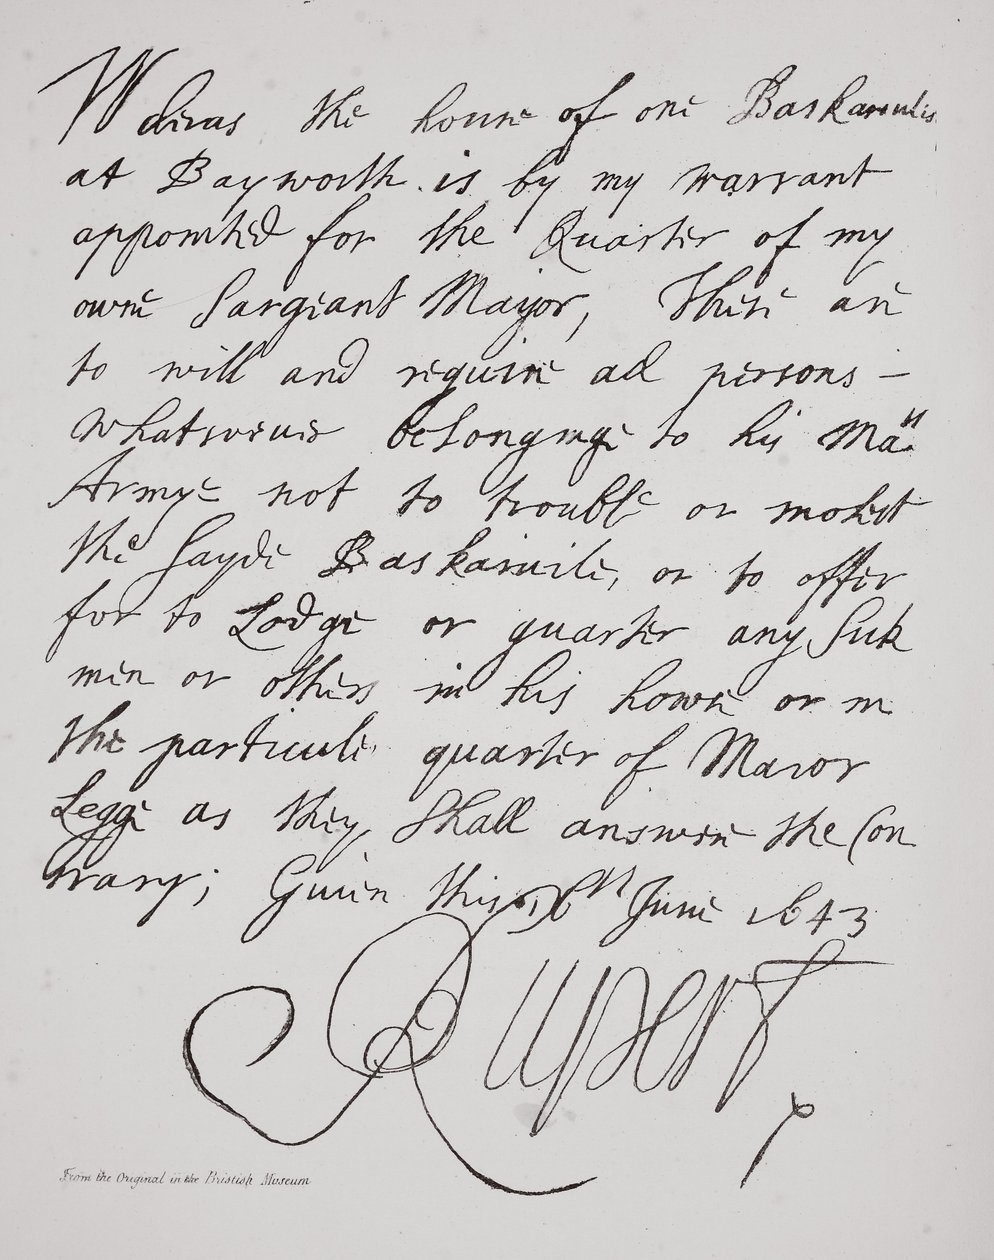 Wheras the house of one Baskarvilis
at Bayworth is by my warrant
appointed for the Quarter of my
owne Sargeant Mayor, These are
to will and require all persons –
whatsoever belonginge to his Mats
Armye not to trouble or molest
the sayde Baskarvile, or to offer
for to Lodge or quarter any sick
men or others in his howse or in
the particuler quarter of Maior
Legge as they shall answere the Con
trary; Given this th June 1643
Rupert
From the Original in the Bristish Museum